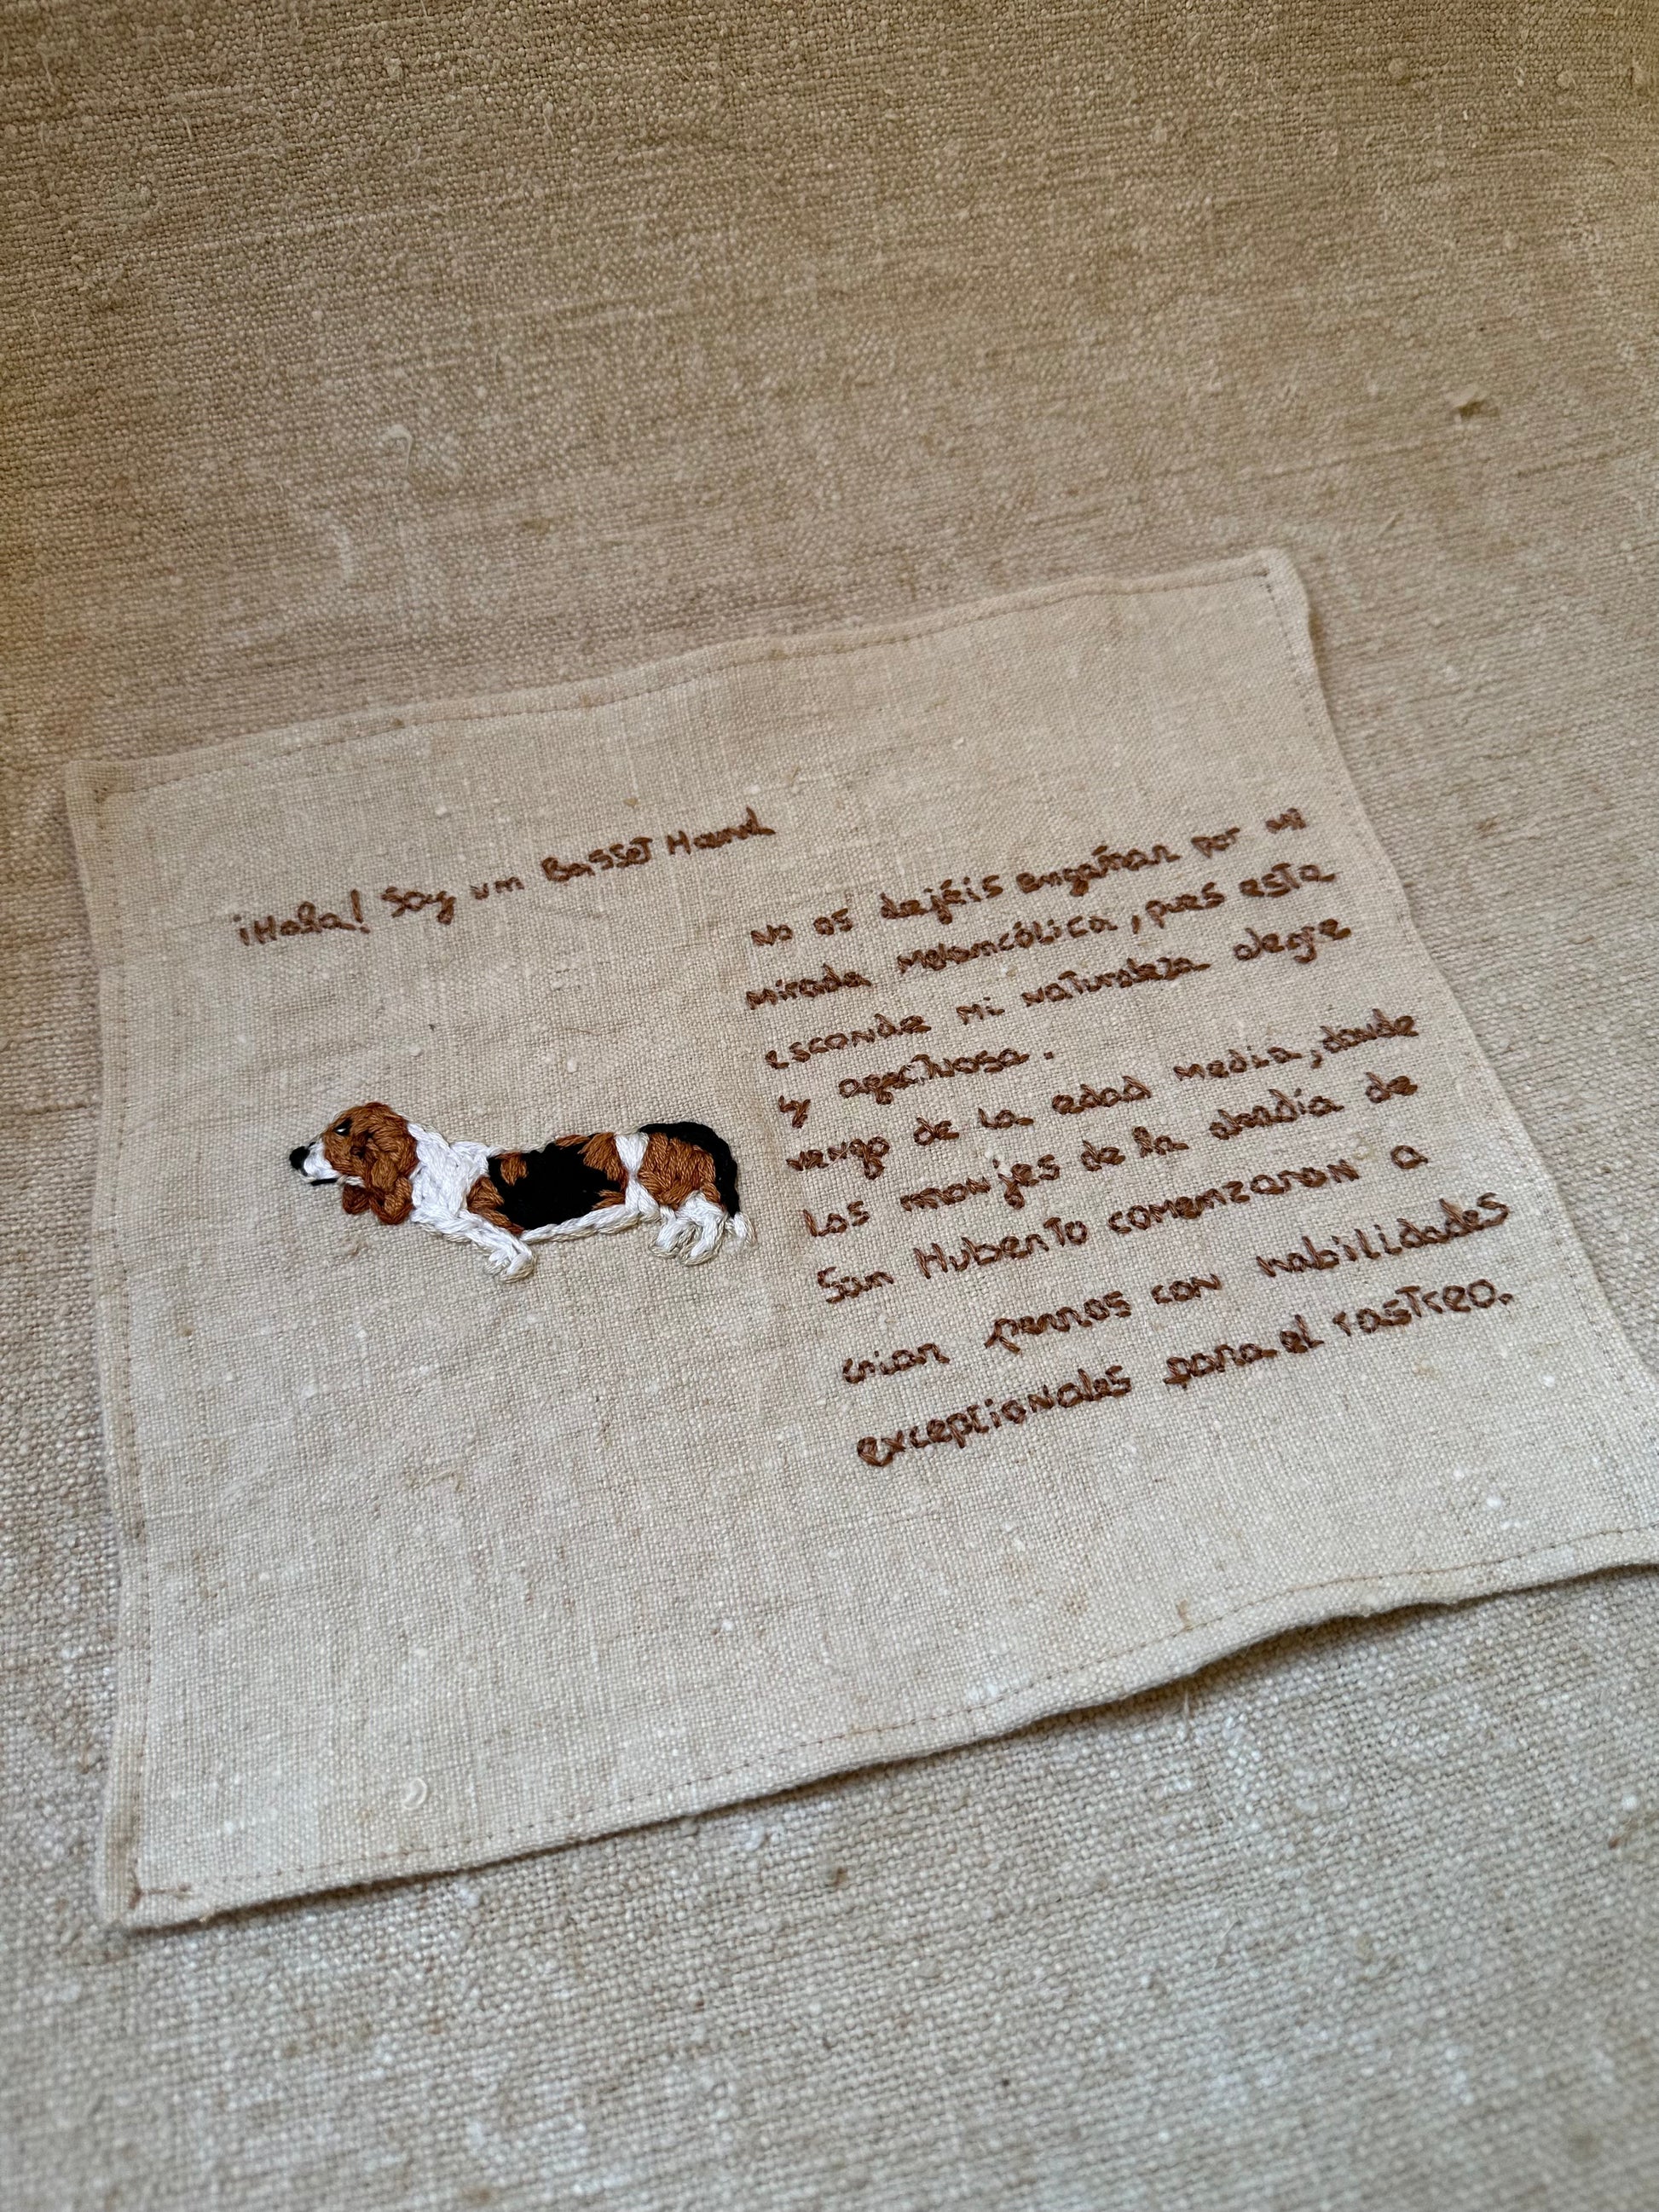 ¡Hola! Soy un Basset Hound
No os dejéis engañar por mi
mirada melancólica, pues esta
esconde mi naturaleza alegre
y afectuosa.
vengo de la edad media, donde
los monjes de la abadía de
San Huberto comenzaron a
criar perros con habilidades
excepcionales para el rastreo.